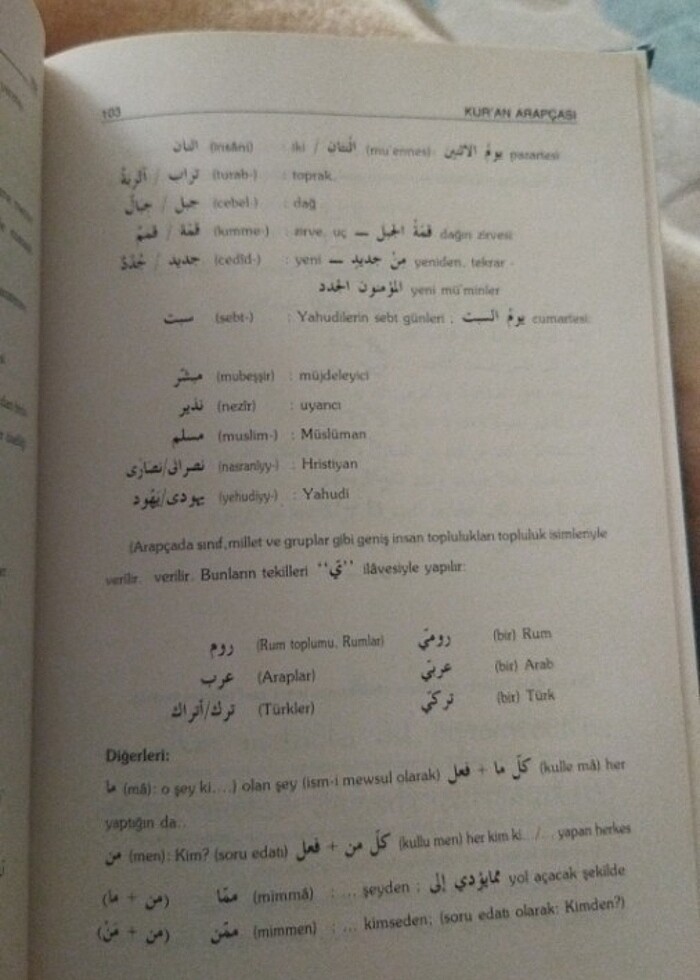 103 KUR'AN ARAPÇASI
اثنان (insâni) : iki / اثنتان (mu'ennes): يومُ الاثنين pazartesi
تراب / أتربةٌ (turab-) : toprak
جبل / جبالٌ (cebel-) : dağ
قمّة / قممٌ (kımme-) : zirve, uç — قمّةُ الجبل dağın zirvesi
جديد / جُدُدٌ (cedîd-) : yeni — مِنْ جديدٍ yeniden, tekrar -
المؤمنون الجدد yeni mü'minler
سبت (sebt-) : Yahudilerin sebt günleri ; يومُ السبت cumartesi:
مبشّر (mubeşşir) : müjdeleyici
نذير (nezîr) : uyarıcı
مسلم (muslim-) : Müslüman
نصرانى/نصارَى (nasraniyy-) : Hristiyan
يهودى/يَهُود (yehudiyy-) : Yahudi
(Arapçada sınıf,millet ve gruplar gibi geniş insan toplulukları topluluk isimleriyle
verilir. verilir. Bunların tekilleri "يّ" ilâvesiyle yapılır:
روم (Rum toplumu, Rumlar) روميّ (bir) Rum
عرب (Araplar) عربيّ (bir) Arab
ترك/أتراك (Türkler) تركيّ (bir) Türk
Diğerleri:
ما (mâ): o şey ki....) olan şey (ism-i mewsul olarak) كلّ ما + فعل (kulle mâ) her
yaptığın da..
من (men): Kim? (soru edatı) كلّ من + فعل (kullu men) her kim ki.. /.. yapan herkes
(من + ما) ممّا (mimmâ) : ... şeyden ; ممايؤدي إلى yol açacak şekilde
(من + مَنْ) ممّن (mimmen) : ... kimseden; (soru edatı olarak: Kimden?)